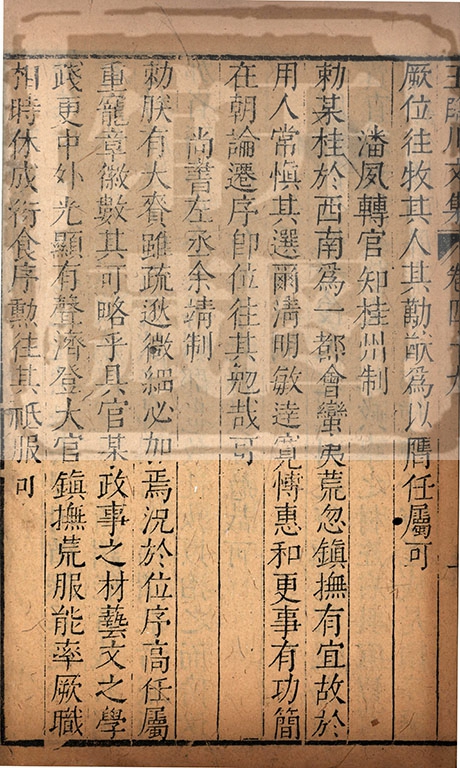 王臨川文集 卷四十九
厥位往牧其人其勤猷為以膺任屬可
潘夙轉官知桂州制
勅某桂於西南為一都會蠻夷荒忽鎮撫有宜故於
用人常慎其選爾溝明敏達寬慱惠和更事有功簡
在朝論遷序郎位往其勉哉可
尚書左丞余靖制
勅朕有大賚雖疏逖微細必加焉況於位序高任屬
重寵章徽數其可略乎具官某政事之材藝文之學
踐更中外光顯有聲濟登大官鎮撫荒服能率厥職
相時休成衍食序勲往其祇服可